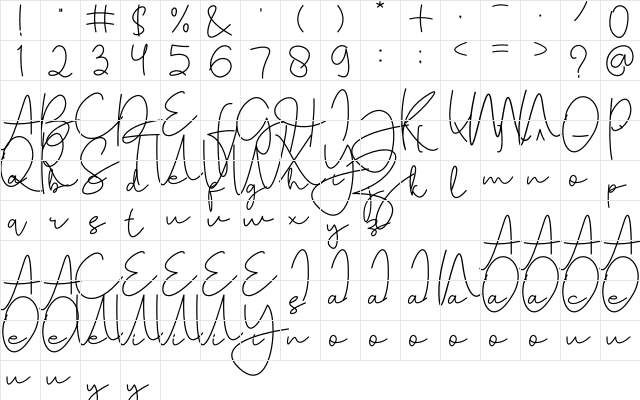 ! " # $ % & ' ( ) * + , - . / 0
1 2 3 4 5 6 7 8 9 : ; < = > ? @
A B C D E F G H I J K L M N O P
Q R S T U V W X Y Z
a b c d e f g h i j k l m n o p
q r s t u v w x y z
A A A A
A A C E E E E I I I I N O O O O
O O U U U U Y s a a a a a a c e
e e e i i i i n o o o o o o u u
u u y y